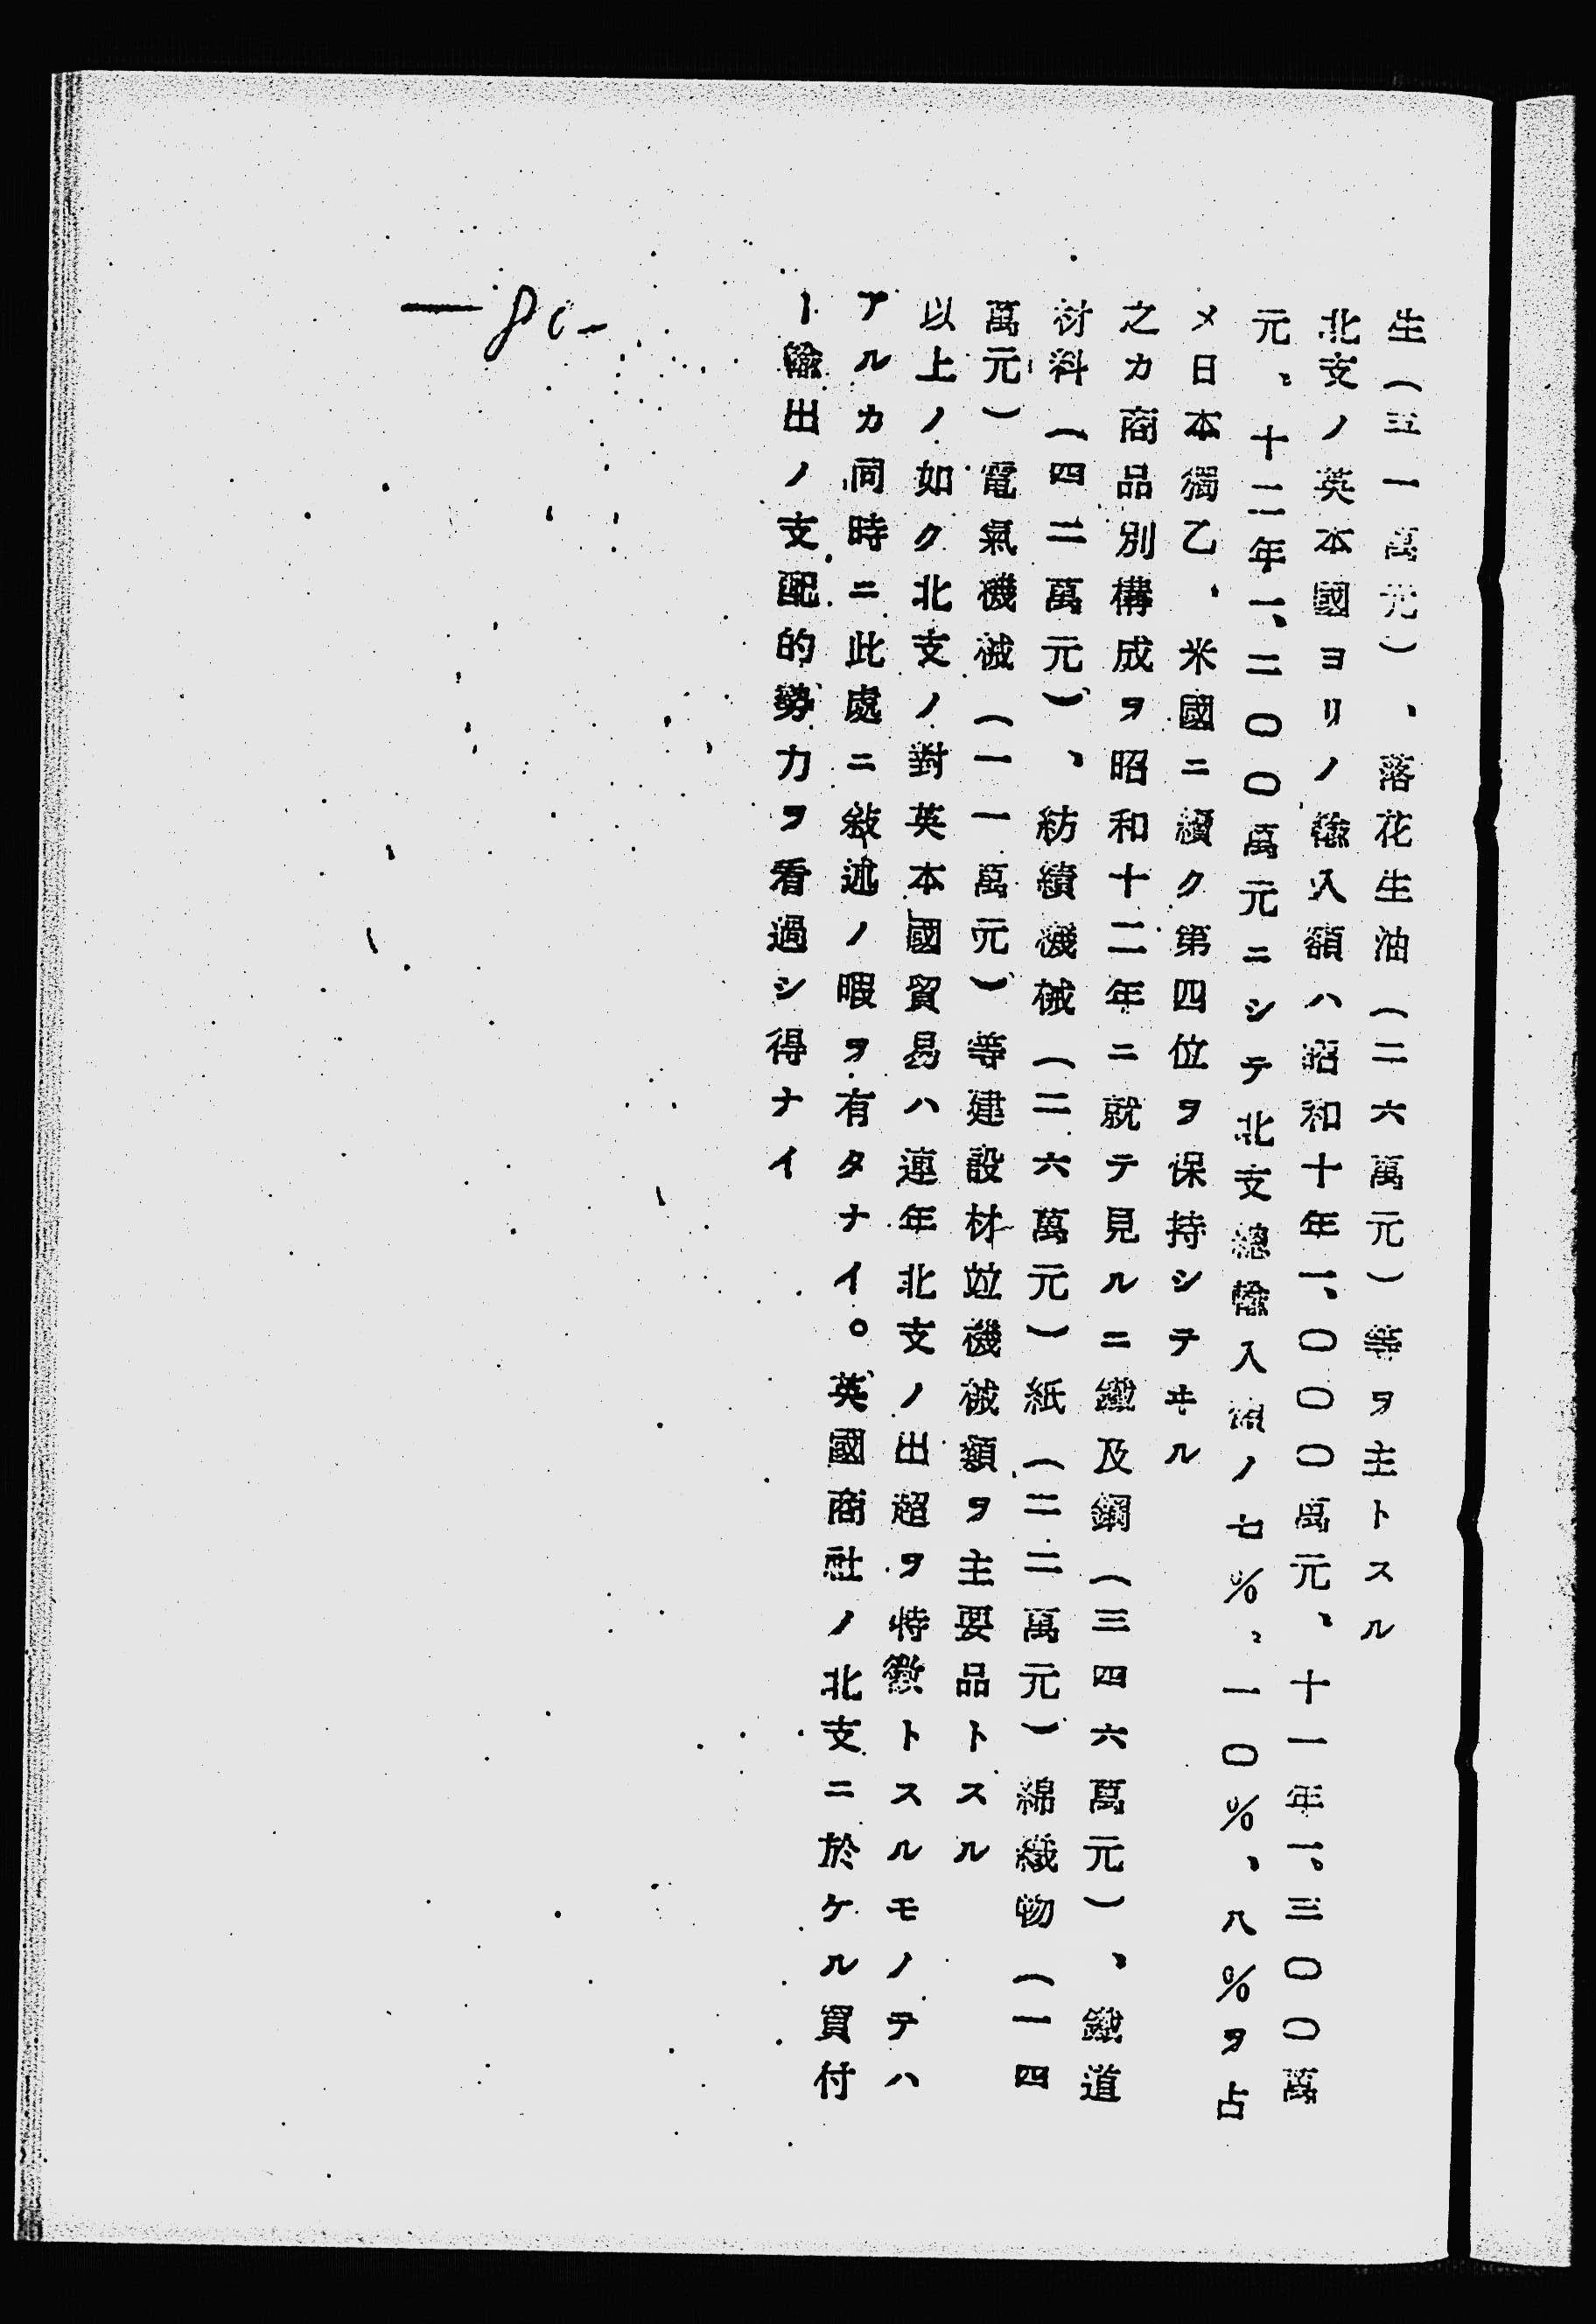 生（五一萬元）、落花生油（二六萬元）等ヲ主トスル
北支ノ英本國ヨリノ輸入額ハ昭和十年一、〇〇〇萬元、十一年一、三〇〇萬
元、十二年一、二〇〇萬元ニシテ北支總輸入額ノ七％、一〇％、八％ヲ占
メ日本獨乙、米國ニ續ク第四位ヲ保持シテヰル
之カ商品別構成ヲ昭和十二年ニ就テ見ルニ鐵及鋼（三四六萬元）、鐵道
材料（四二萬元）、紡績機械（二六萬元）紙（二二萬元）綿織物（一四
萬元）電氣機械（一一萬元）等建設材竝機械類ヲ主要品トスル
以上ノ如ク北支ノ對英本國貿易ハ連年北支ノ出超ヲ特徴トスルモノテハ
アルカ同時ニ此處ニ敍述ノ暇ヲ有タナイ。英國商社ノ北支ニ於ケル買付
ー輸出ノ支配的勢力ヲ看過シ得ナイ